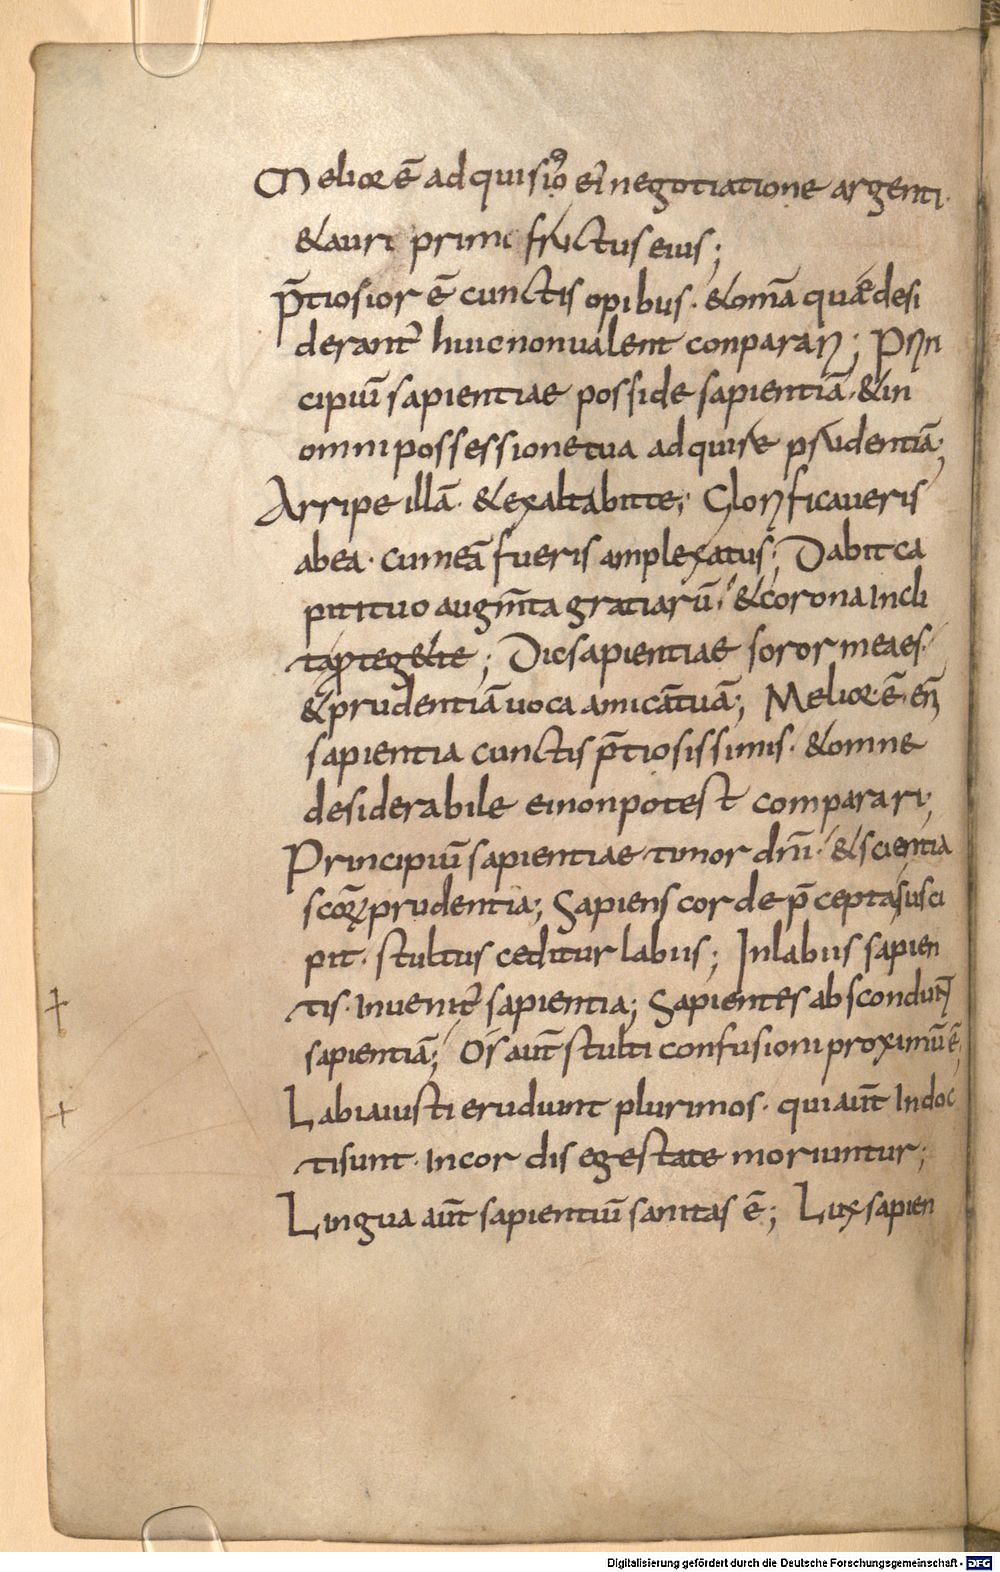 Melior ē adquisiꝰo ei negotiatione argenti·
&auri primi fructus eius;
p̄tiosior ē cunctis opibus· &om̄a quae desi
derant̉ huic non ualent conparari; Prin
cipiū sapientiae posside sapientiā· &in
omni possessione tua adquire prudentiā;
Arripe illā· &exaltabit te; Glorificaueris
abea· cum eā fueris amplexatus; Dabit ca
piti tuo augm̄ta gratiarū· &corona incli
ta proteg&te; Dic sapientiae soror mea es·
&prudentiā uoca amicā tuā; Melior·ē·em̄
sapientia cunctis p̄tiosissimis· &omne
desiderabile ei non potest comparari;
Principiū sapientiae timor dn̄i· &scientia
sc̄oꝝ prudentia; Sapiens corde p̄cepta susci
pit· stultus ceditur labiis; In labiis sapien
tis· inuenit̉ sapientia; Sapientes abscondunt
sapientiā; Os aūt stulti confusioni proximū ē;
Labia iusti erudiunt plurimos· qui aūt indoc
ti sunt· in cordis egestate moriuntur;
Lingua aūt sapientiū sanitas ē; Lux sapien
Digitalisierung gefördert durch die Deutsche Forschungsgemeinschaft - DFG